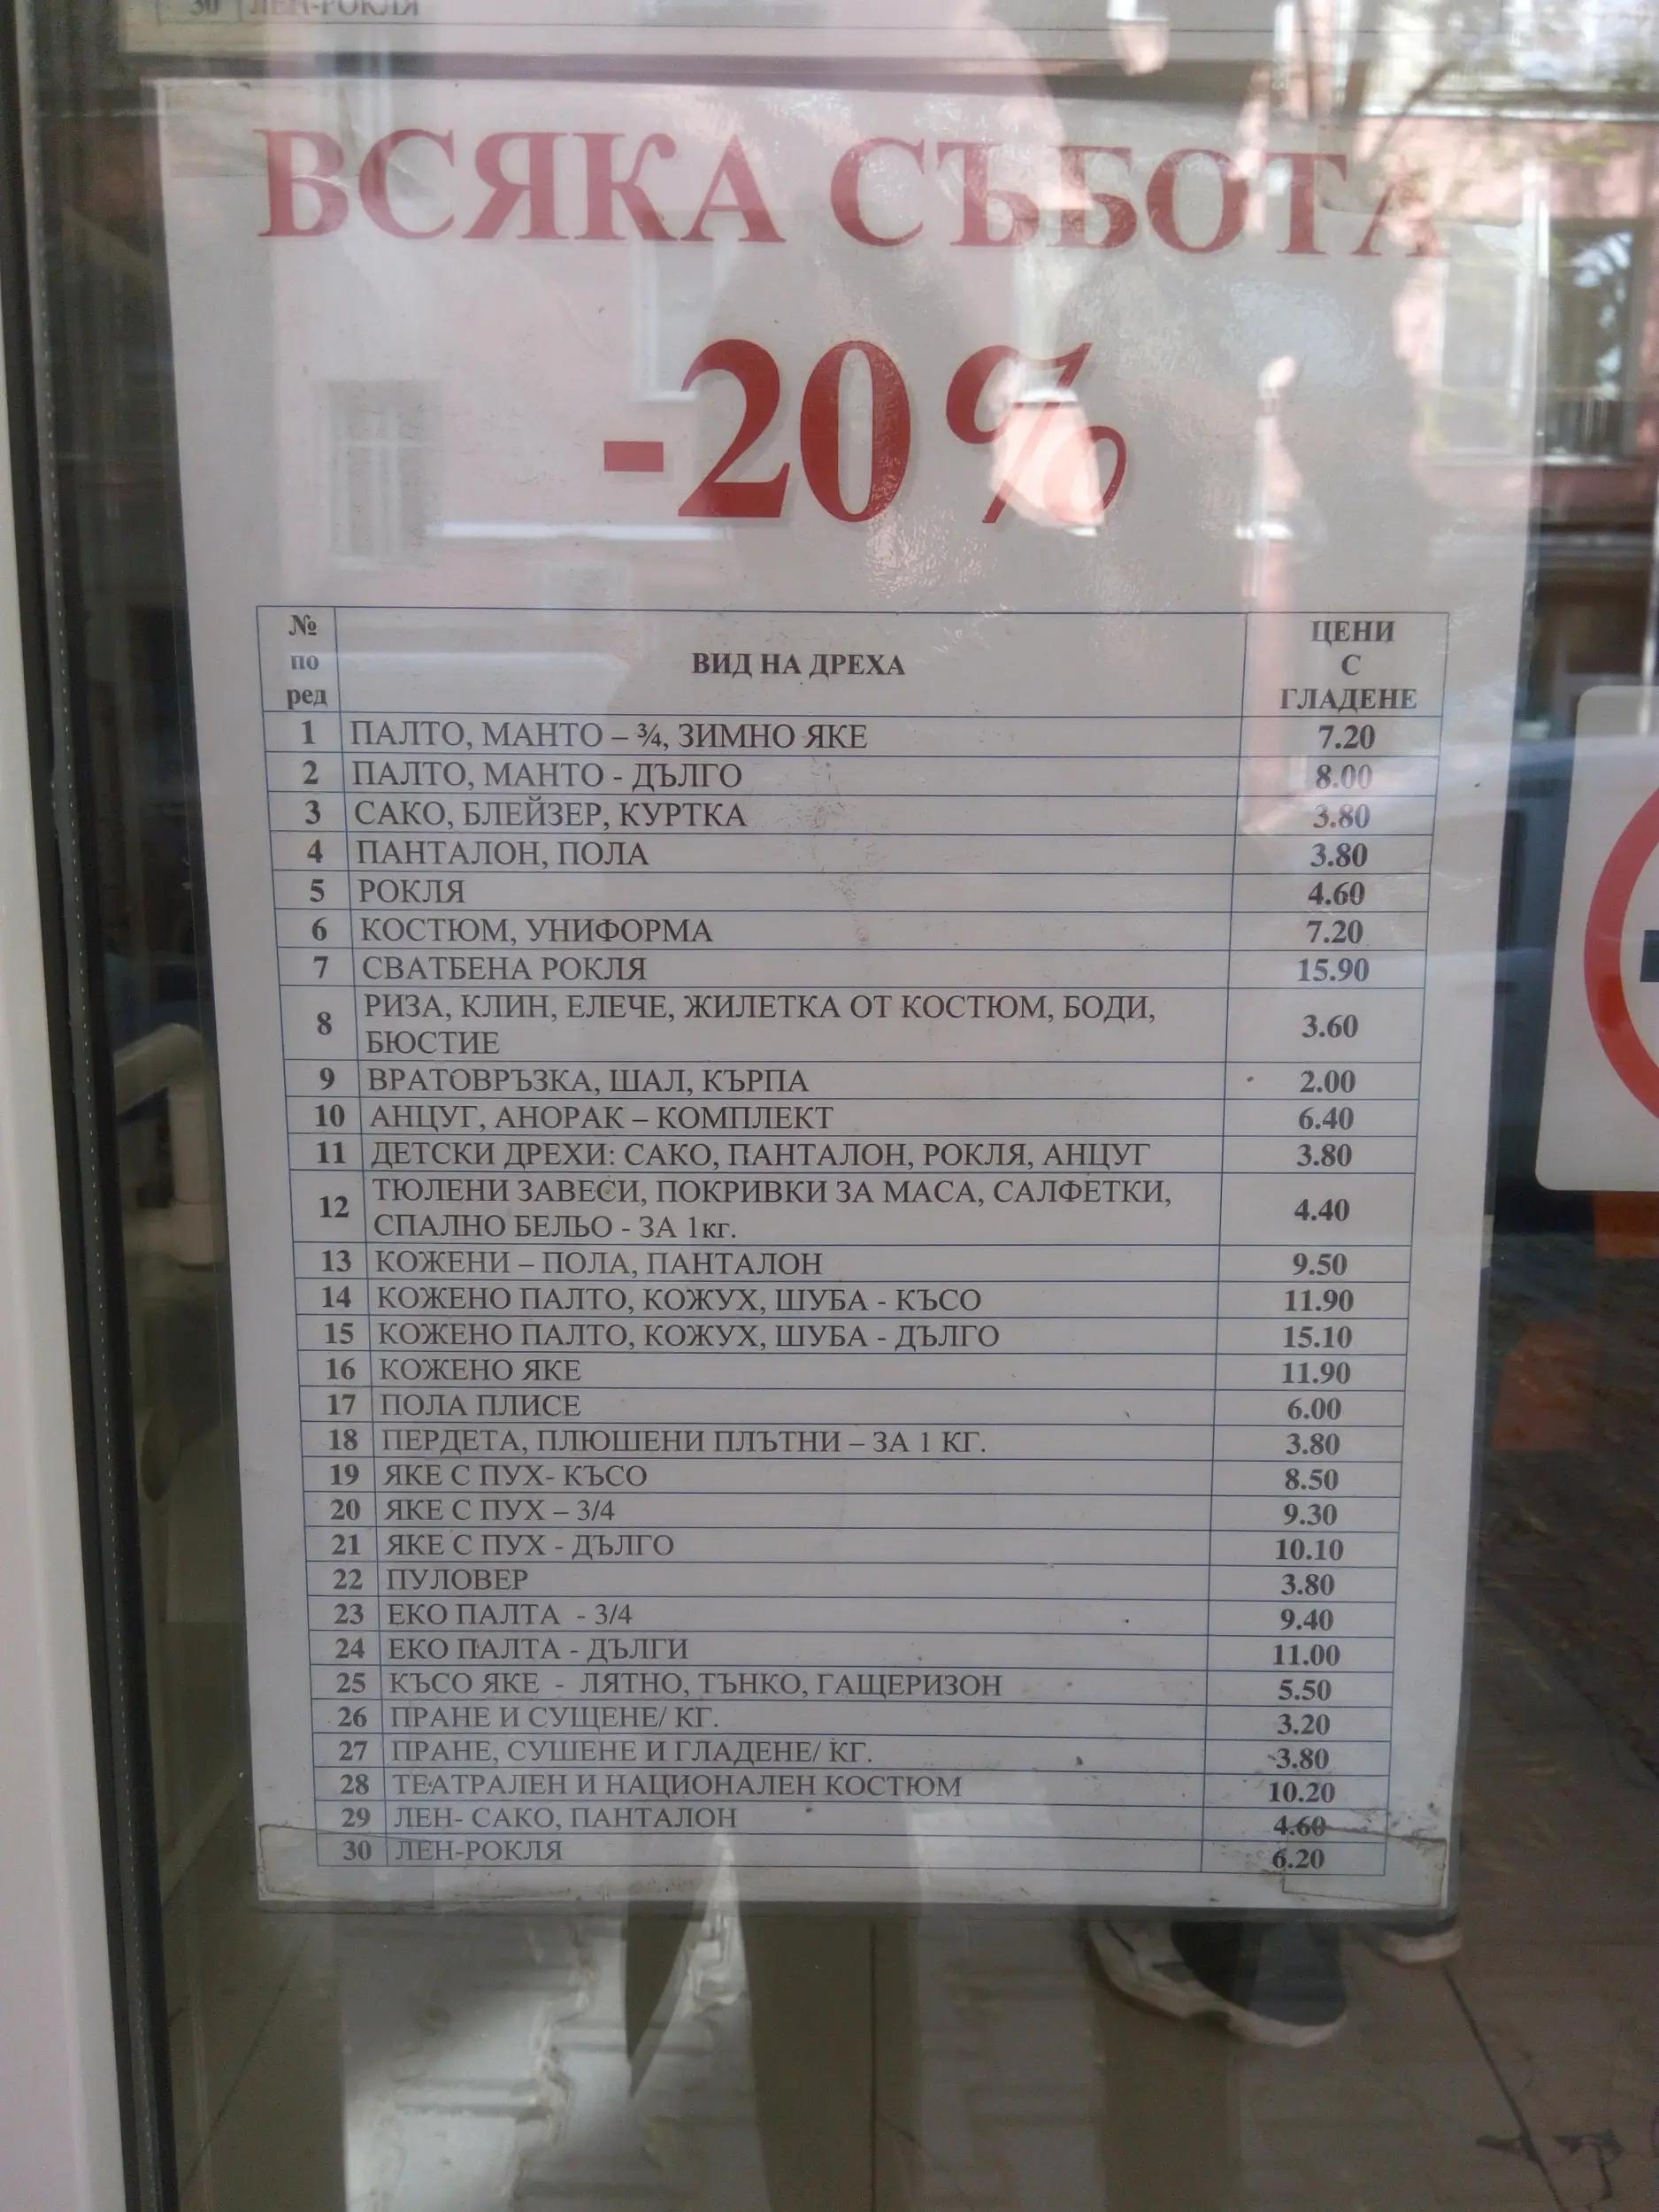 30 ЛЕН-РОКЛЯ
ВСЯКА СЪБОТА
-20%
№ по ред ВИД НА ДРЕХА ЦЕНИ С ГЛАДЕНЕ
1 ПАЛТО, МАНТО – ¾, ЗИМНО ЯКЕ 7.20
2 ПАЛТО, МАНТО - ДЪЛГО 8.00
3 САКО, БЛЕЙЗЕР, КУРТКА 3.80
4 ПАНТАЛОН, ПОЛА 3.80
5 РОКЛЯ 4.60
6 КОСТЮМ, УНИФОРМА 7.20
7 СВАТБЕНА РОКЛЯ 15.90
8 РИЗА, КЛИН, ЕЛЕЧЕ, ЖИЛЕТКА ОТ КОСТЮМ, БОДИ,
БЮСТИЕ 3.60
9 ВРАТОВРЪЗКА, ШАЛ, КЪРПА 2.00
10 АНЦУГ, АНОРАК – КОМПЛЕКТ 6.40
11 ДЕТСКИ ДРЕХИ: САКО, ПАНТАЛОН, РОКЛЯ, АНЦУГ 3.80
12 ТЮЛЕНИ ЗАВЕСИ, ПОКРИВКИ ЗА МАСА, САЛФЕТКИ,
СПАЛНО БЕЛЬО - ЗА 1кг. 4.40
13 КОЖЕНИ – ПОЛА, ПАНТАЛОН 9.50
14 КОЖЕНО ПАЛТО, КОЖУХ, ШУБА - КЪСО 11.90
15 КОЖЕНО ПАЛТО, КОЖУХ, ШУБА - ДЪЛГО 15.10
16 КОЖЕНО ЯКЕ 11.90
17 ПОЛА ПЛИСЕ 6.00
18 ПЕРДЕТА, ПЛЮШЕНИ ПЛЪТНИ – ЗА 1 КГ. 3.80
19 ЯКЕ С ПУХ- КЪСО 8.50
20 ЯКЕ С ПУХ – 3/4 9.30
21 ЯКЕ С ПУХ - ДЪЛГО 10.10
22 ПУЛОВЕР 3.80
23 ЕКО ПАЛТА - 3/4 9.40
24 ЕКО ПАЛТА - ДЪЛГИ 11.00
25 КЪСО ЯКЕ - ЛЯТНО, ТЪНКО, ГАЩЕРИЗОН 5.50
26 ПРАНЕ И СУЩЕНЕ/ КГ. 3.20
27 ПРАНЕ, СУШЕНЕ И ГЛАДЕНЕ/ КГ. 3.80
28 ТЕАТРАЛЕН И НАЦИОНАЛЕН КОСТЮМ 10.20
29 ЛЕН- САКО, ПАНТАЛОН 4.60
30 ЛЕН-РОКЛЯ 6.20